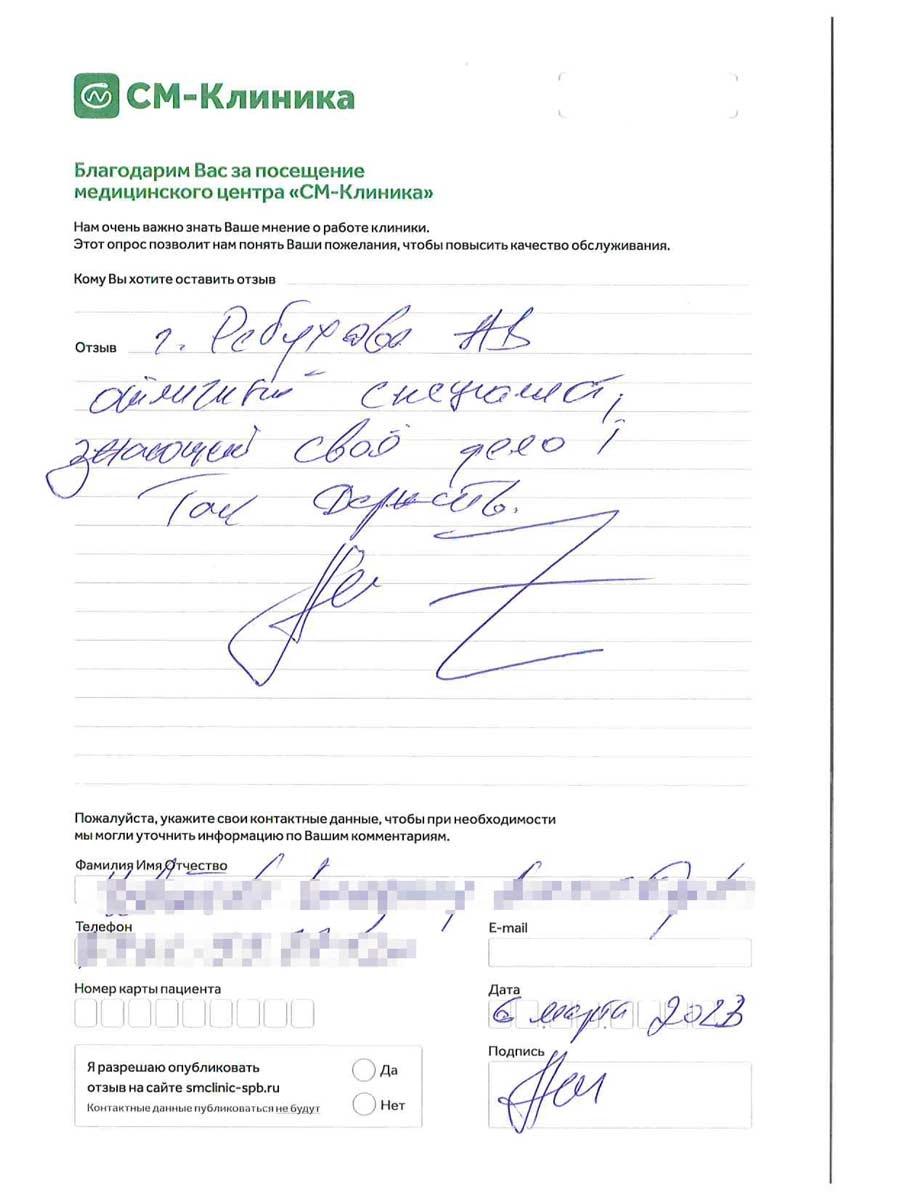 СМ-Клиника
Благодарим Вас за посещение
медицинского центра «СМ-Клиника»
Нам очень важно знать Ваше мнение о работе клиники.
Этот опрос позволит нам понять Ваши пожелания, чтобы повысить качество обслуживания.
Кому Вы хотите оставить отзыв
Отзыв г. АВ
отличный специалист,
знающий своё дело!
Так держать.
Пожалуйста, укажите свои контактные данные, чтобы при необходимости
мы могли уточнить информацию по Вашим комментариям.
Фамилия Имя Отчество
Телефон
E-mail
Номер карты пациента
Дата
6 марта 2023
Подпись
Я разрешаю опубликовать
отзыв на сайте smclinic-spb.ru
Контактные данные публиковаться не будут
Да
Нет